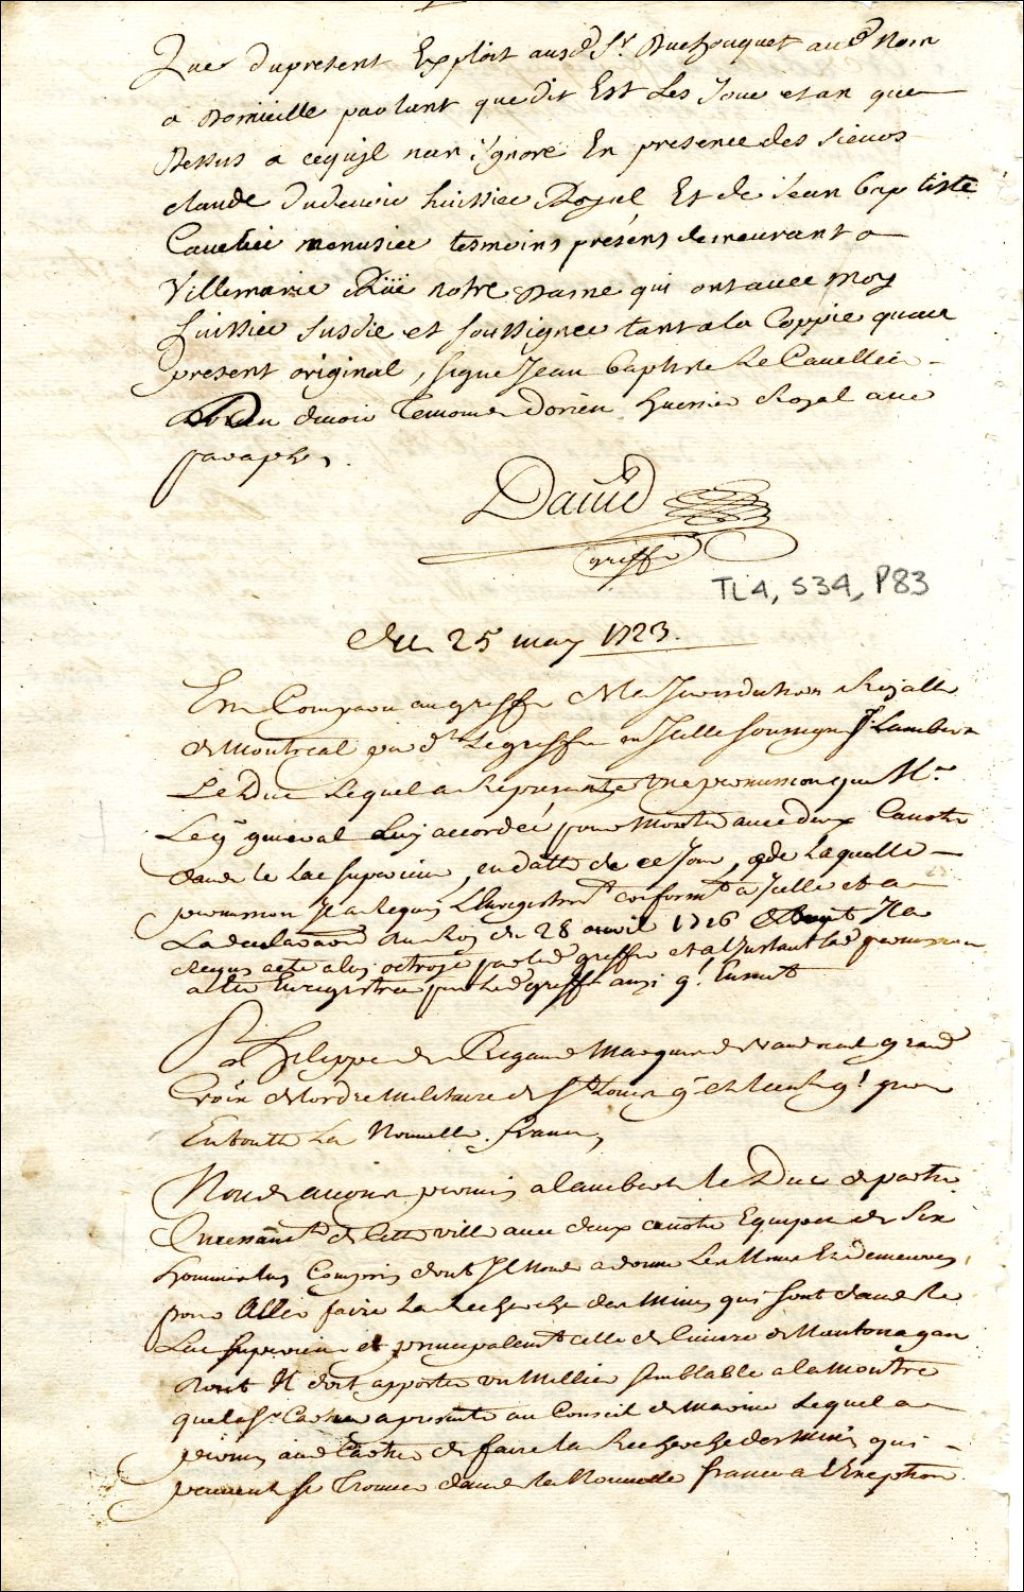 Que du present Exploit ausd Sr. Duchouquet aud Nom
a Domicille parlant que dit Est Les Jour et an que
Dessus a cequil nen ignore En presence des sieurs
claude Dudevoir huissier Royal Et de Jean baptiste
Cavelié menusier tesmoins présens demeurant a
Villemarie Rüe notre Dame qui ont avec moy
huissier susdit et soussignee tant ala Coppie quau
present original, signe Jean baptiste Le Cavellié
huissier Royal avec
paraphe.
David
greffier
TL4, S34, P83
Du 25 may 1723.
Est Comparu au greffe de la Jurisdiction Royalle
de Montreal par dt. Le greffier en Icelle soussigné Lambert
Le Duc Lequel a Representé une permission que Mr.
Le gr. general Luy accordée pour Monter avec deux Canots
dans le Lac superieur, en datte de ce Jour, de Laquelle
permission Il a Requis L'enregistremt conformt a Icelle et a
La declaraon du Roy du 28 avril 1716 Il a
Requis acte a luy octroyé par led greffier et a l'Instant lad permission
a été Enregistrée par Led greffier ainsi q. Ensuit
Philippe de Rigaud Marquis de Vaudreuil grand
Croix de lordre Militaire de St Louis gr et Lieut gl. pour
En toute La Nouvelle france,
Nous avons permis a lambert le Duc de partir
Incessamt de Cette ville avec deux canots Equipés de six
hommes luy Compris dont Il Nous a donné Les Noms Et demeures,
pour Aller faire La Recherche des Mines qui sont dans Le
Lac superieur et principalemt celle de Riviere de Nantonagan
Dont Il doit apporter un Millier semblable a la Montre
que le Sr. Castre a presenté au Conseil de Marine Lequel a
permis aud Castre de faire la Recherche des Mines qui
peuvent se Trouver dans la Nouvelle france a l'Exeption